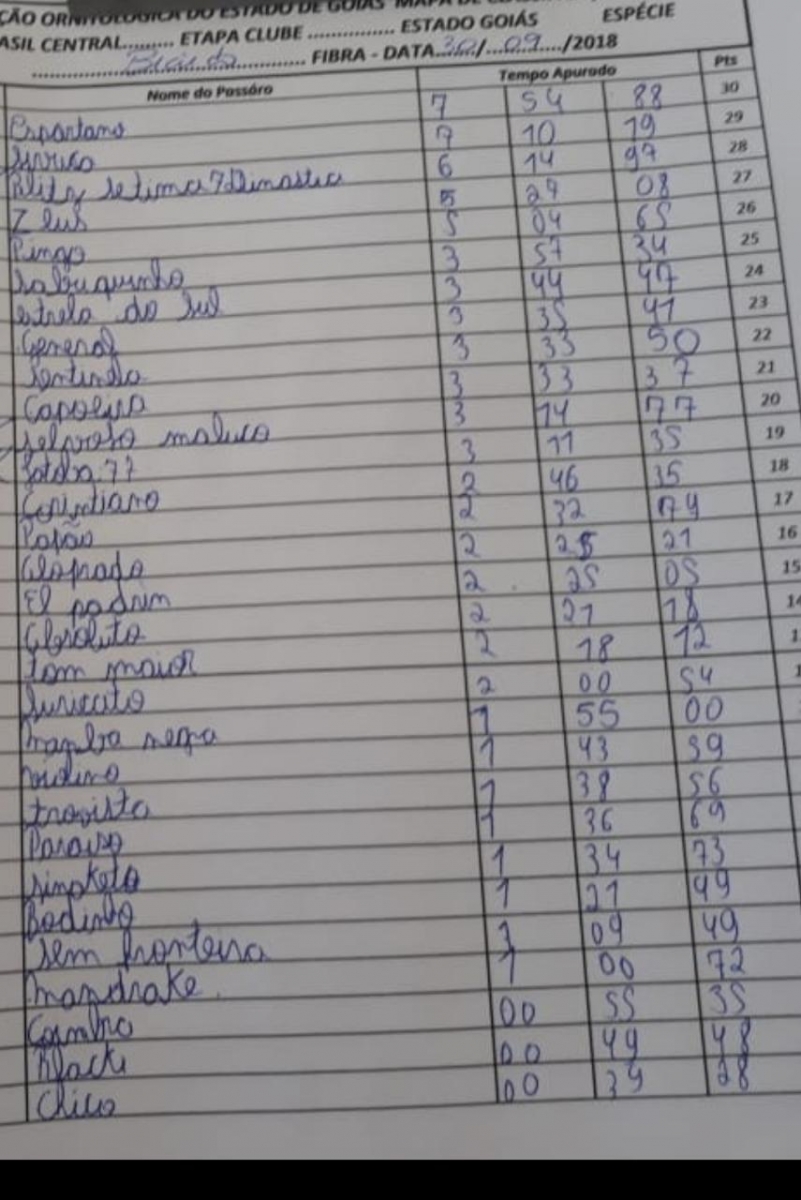 ÇÃO ORNITOLÓGICA DO ESTADO DE GOIÁS MAPA DE
ASIL CENTRAL......... ETAPA CLUBE ............... ESTADO GOIÁS ESPÉCIE
FIBRA - DATA 30/09/2018
Nome do Pássaro Tempo Apurado Pts
Espartano 7 54 88 30
7 10 19 29
Blitz setima 7 Dinastia 6 14 97 28
Zeus 5 27 08 27
Pingo 5 04 65 26
Sabuguinho 3 57 34 25
estrela do sul 3 44 47 24
General 3 35 41 23
Sentinela 3 33 50 22
Capoeira 3 33 37 21
maluco 3 14 77 20
77 3 11 35 19
Corintiano 2 46 35 18
Papão 2 32 74 17
2 25 21 16
El padrim 2 25 05 15
Absoluto 2 21 18
tom maior 2 18 12
Suricato 2 00 54
mamba negra 1 55 00
1 43 59
1 38 56
Paraiso 1 36 69
1 34 73
Bodinho 1 21 49
Sem fronteira 1 09 49
mandrake 1 00 72
00 55 35
Black 00 49 48
Chico 00 39 28